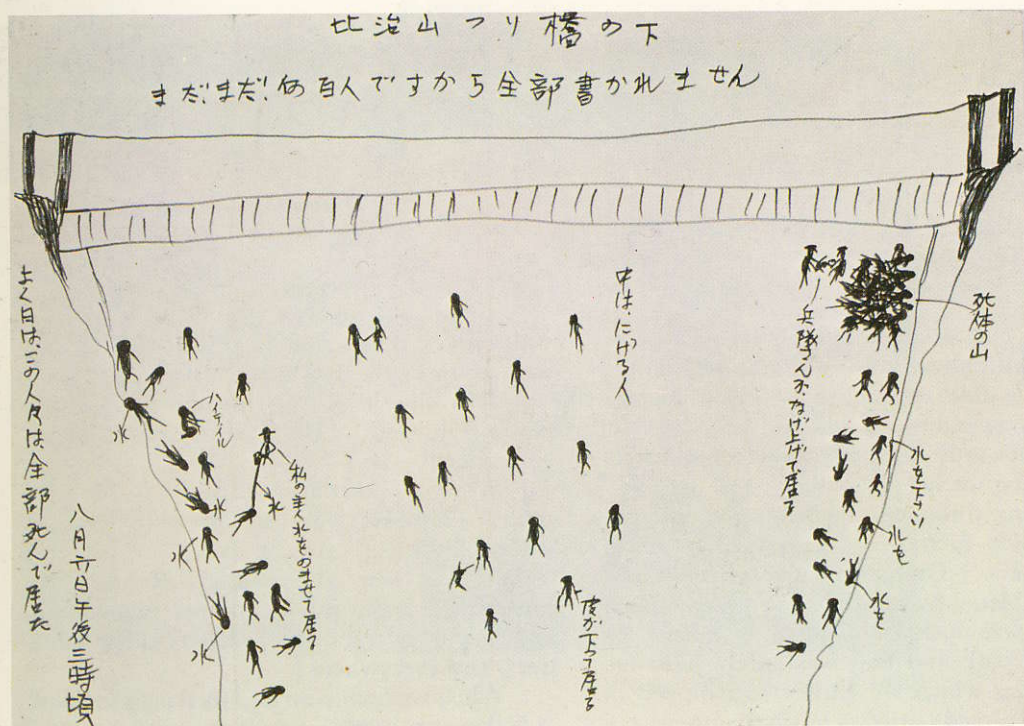 比治山つり橋の下
まだまだ何百人ですから全部書かれません
死体の山
兵隊さんがなげ上げて居る
水を下さい
水を
水を
中は、にげる人
皮が下って居る
私の主人水をのませて居る
水
水
ハイテイル
水
水
水
八月六日午後三時頃
よく日は、この人々は全部死んで居た